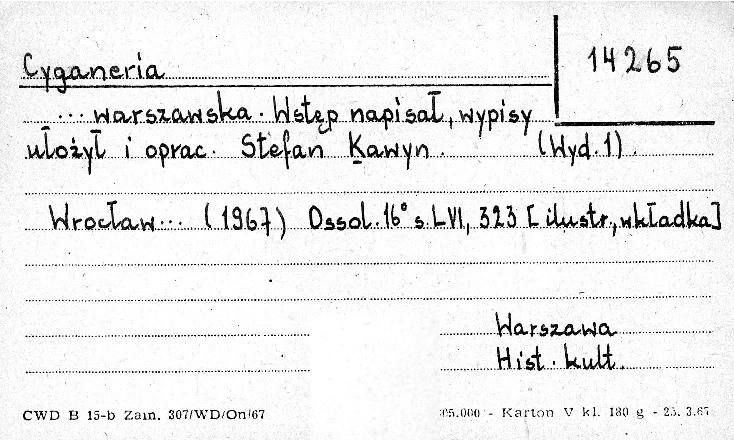 14265
Cyganeria
... warszawska. Wstęp napisał, wypisy
ułożył i oprac. Stefan Kawyn. (Wyd. 1).
Wrocław... (1967) Ossol. 16° s. LVI, 323 [ilustr., wkładka]
Warszawa
Hist. kult.
CWD B 15-b Zam. 307/WD/On/67
05.000 - Karton V kl. 180 g - 23. 3.67